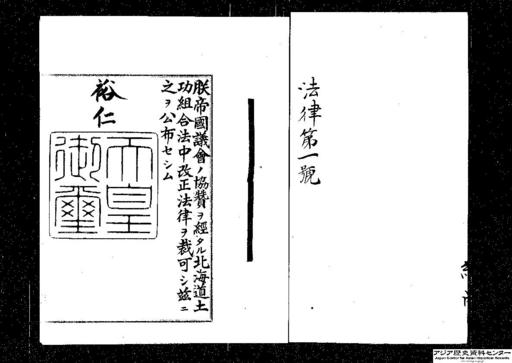 法律第一號
朕帝國議會ノ協贊ヲ經タル北海道土
功組合法中改正法律ヲ裁可シ茲ニ
之ヲ公布セシム
裕仁
天皇
御璽
アジア歴史資料センター
Japan Center for Asian Historical Records